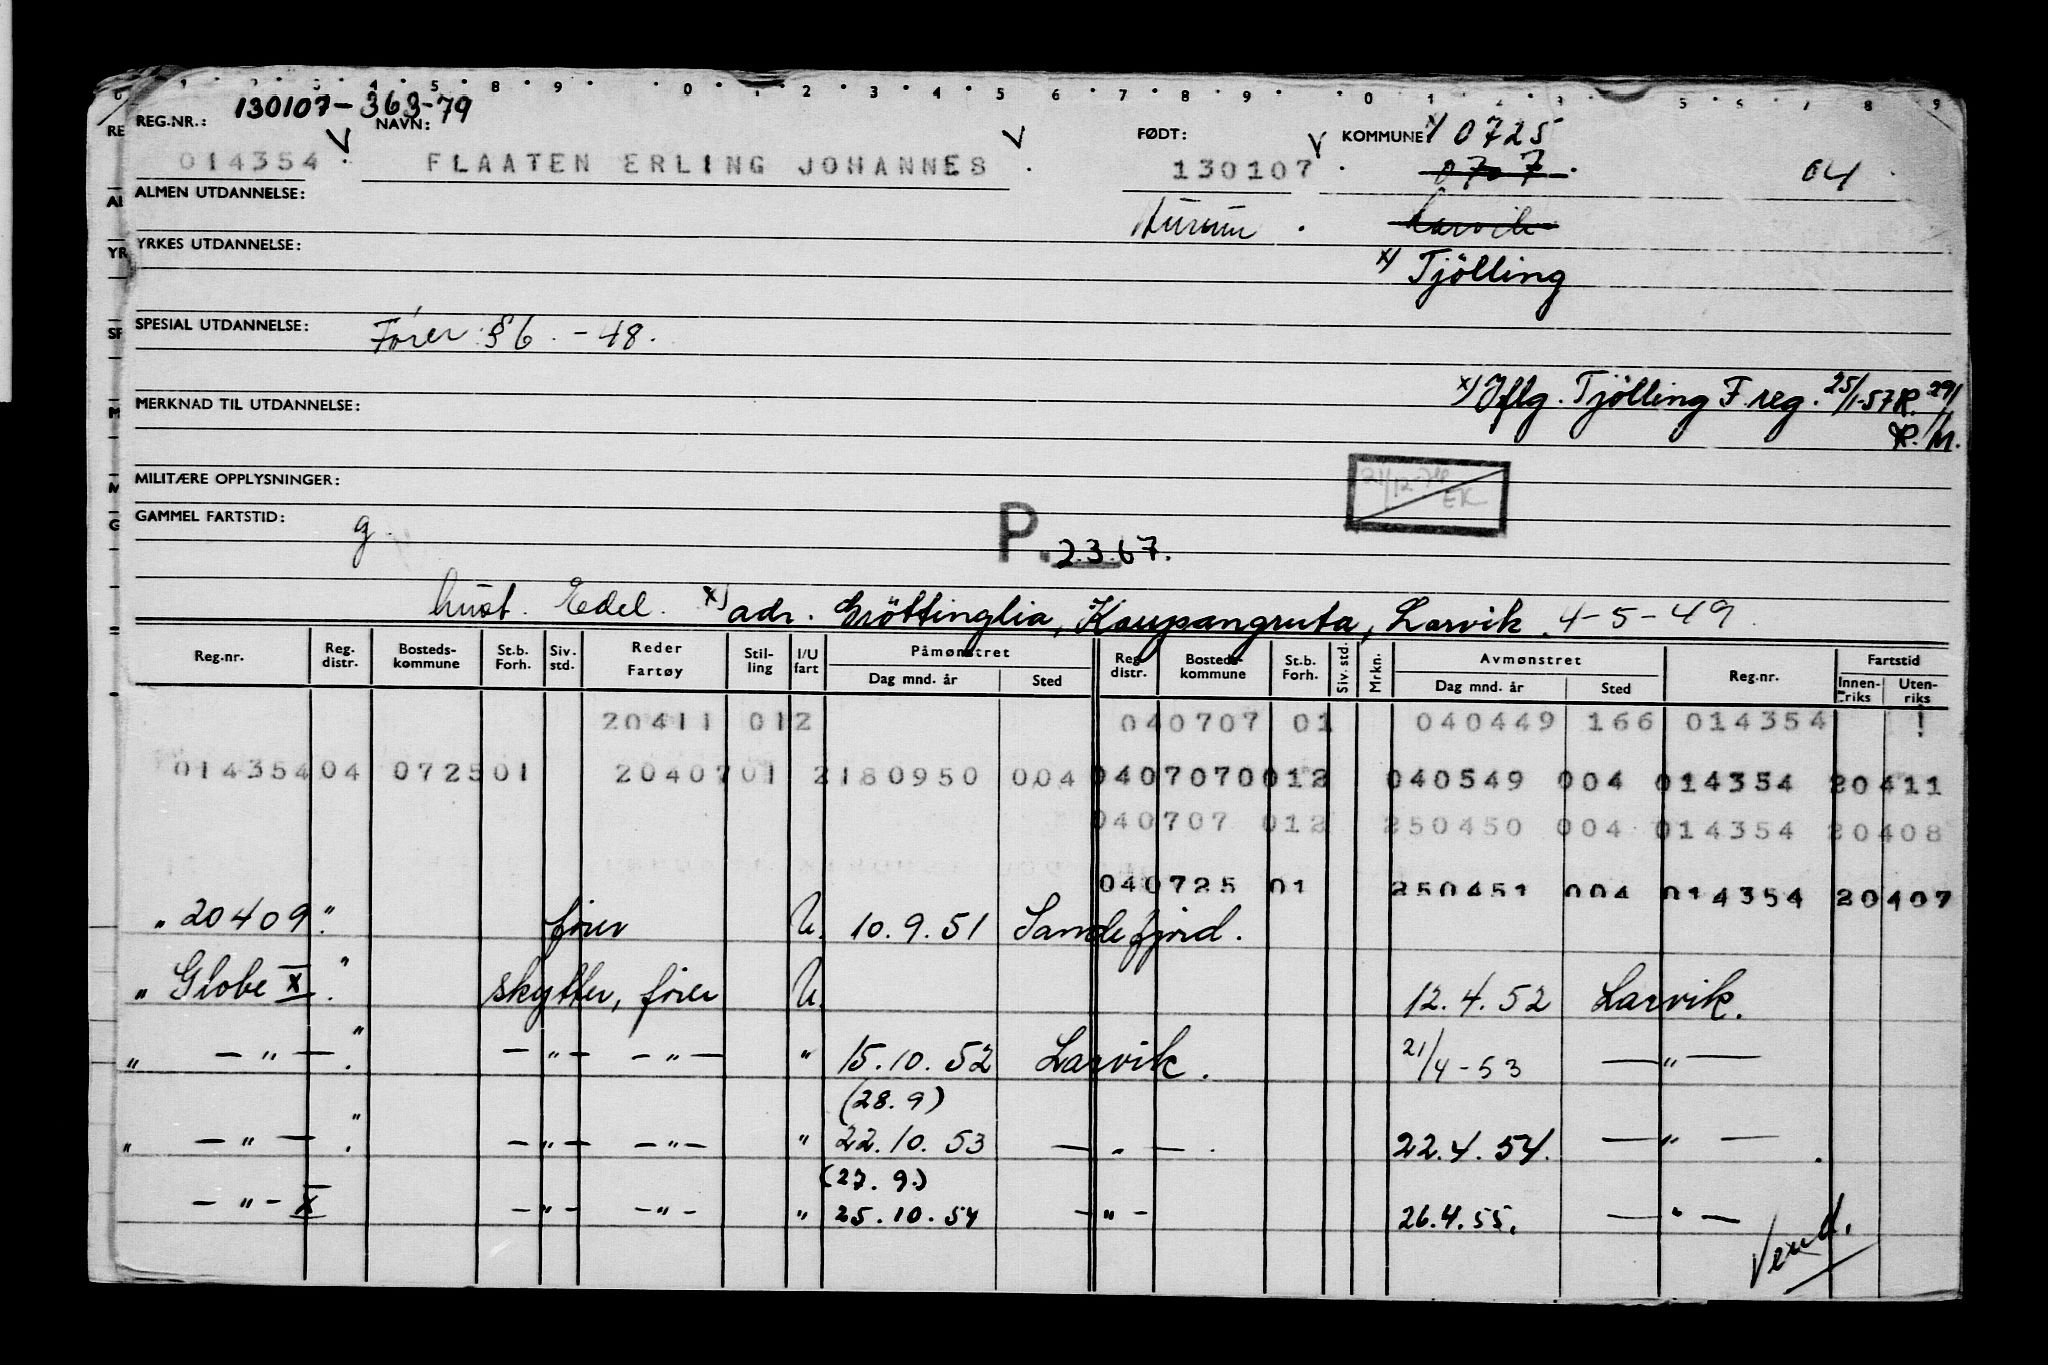 130107-363-79
REG.NR.: NAVN: FØDT: KOMMUNE x) 0725
014354 FLAATEN ERLING JOHANNES 130107 0707 04
ALMEN UTDANNELSE: Hurum Larvik
YRKES UTDANNELSE: x) Tjölling
SPESIAL UTDANNELSE: Fører §6. -48.
x) Iflg. Tjölling F.reg. 25/1-57 R. 29/1
MERKNAD TIL UTDANNELSE: R.M.
MILITÆRE OPPLYSNINGER: 21/12- EK
GAMMEL FARTSTID: g
P. 2.3.67.
hust. Edel. x) adr. Gröttinglia, Kaupangruta, Larvik. 4-5-49
Reg.nr. Reg. distr. Bosteds-kommune St.b. Forh. Siv. std. Reder Fartøy Stil-ling I/U fart Påmønstret Dag mnd. år Sted Reg. distr. Bosteds-kommune St.b. Forh. Siv. std. Mrkn. Avmønstret Dag mnd. år Sted Reg.nr. Fartstid Innen-riks Uten-riks
20411 012 040707 01 040449 166 014354
014354 04 072501 20407 01 2180950 004 0407070012 040549 004 014354 20411
040707 012 250450 004 014354 20408
040725 01 250451 004 014354 20407
„ 20409 " fører U. 10.9.51 Sandefjord.
„ Globe X " skytter, fører U. 12.4.52 Larvik.
„ — " — " — " — — " — " 15.10.52 Larvik. 21/4-53 — " —
(28.9)
„ — " — " — " — — " — " 22.10.53 — " — 22.4.54. — " —
(27.9.)
— " — X — " — — " — " 25.10.54 — " — 26.4.55. — " —
Vend.